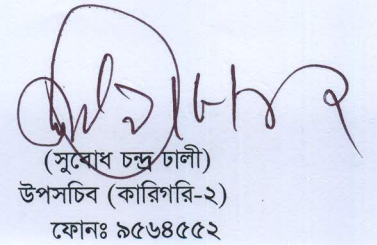 (সুবোধ চন্দ্র ঢালী)
উপসচিব (কারিগরি-২)
ফোনঃ ৯৫৬৪৫৫২